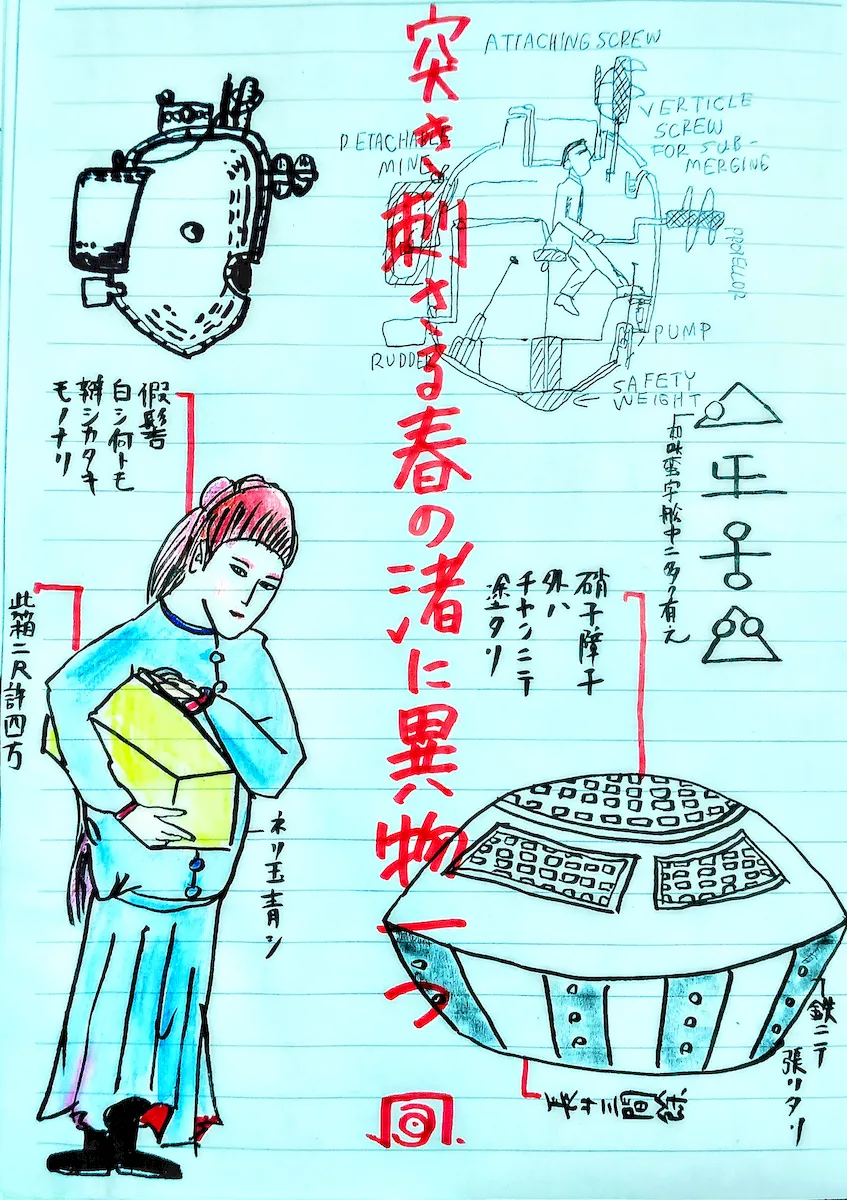 突き刺さる春の渚に異物一つ
ATTACHING SCREW
VERTICLE
SCREW
FOR SUB-
MERGING
DETACHABLE
MINE
PROPELLOR
RUDDER
PUMP
SAFETY
WEIGHT
如此蛮字船中ニ多ク有之
硝子障子
外ハ
チヤンニテ
塗タリ
假髻
白シ何トモ
辨シカタキ
モノナリ
此箱二尺許四方
ネリ玉青シ
鉄ニテ
張リタリ
長サ三間余